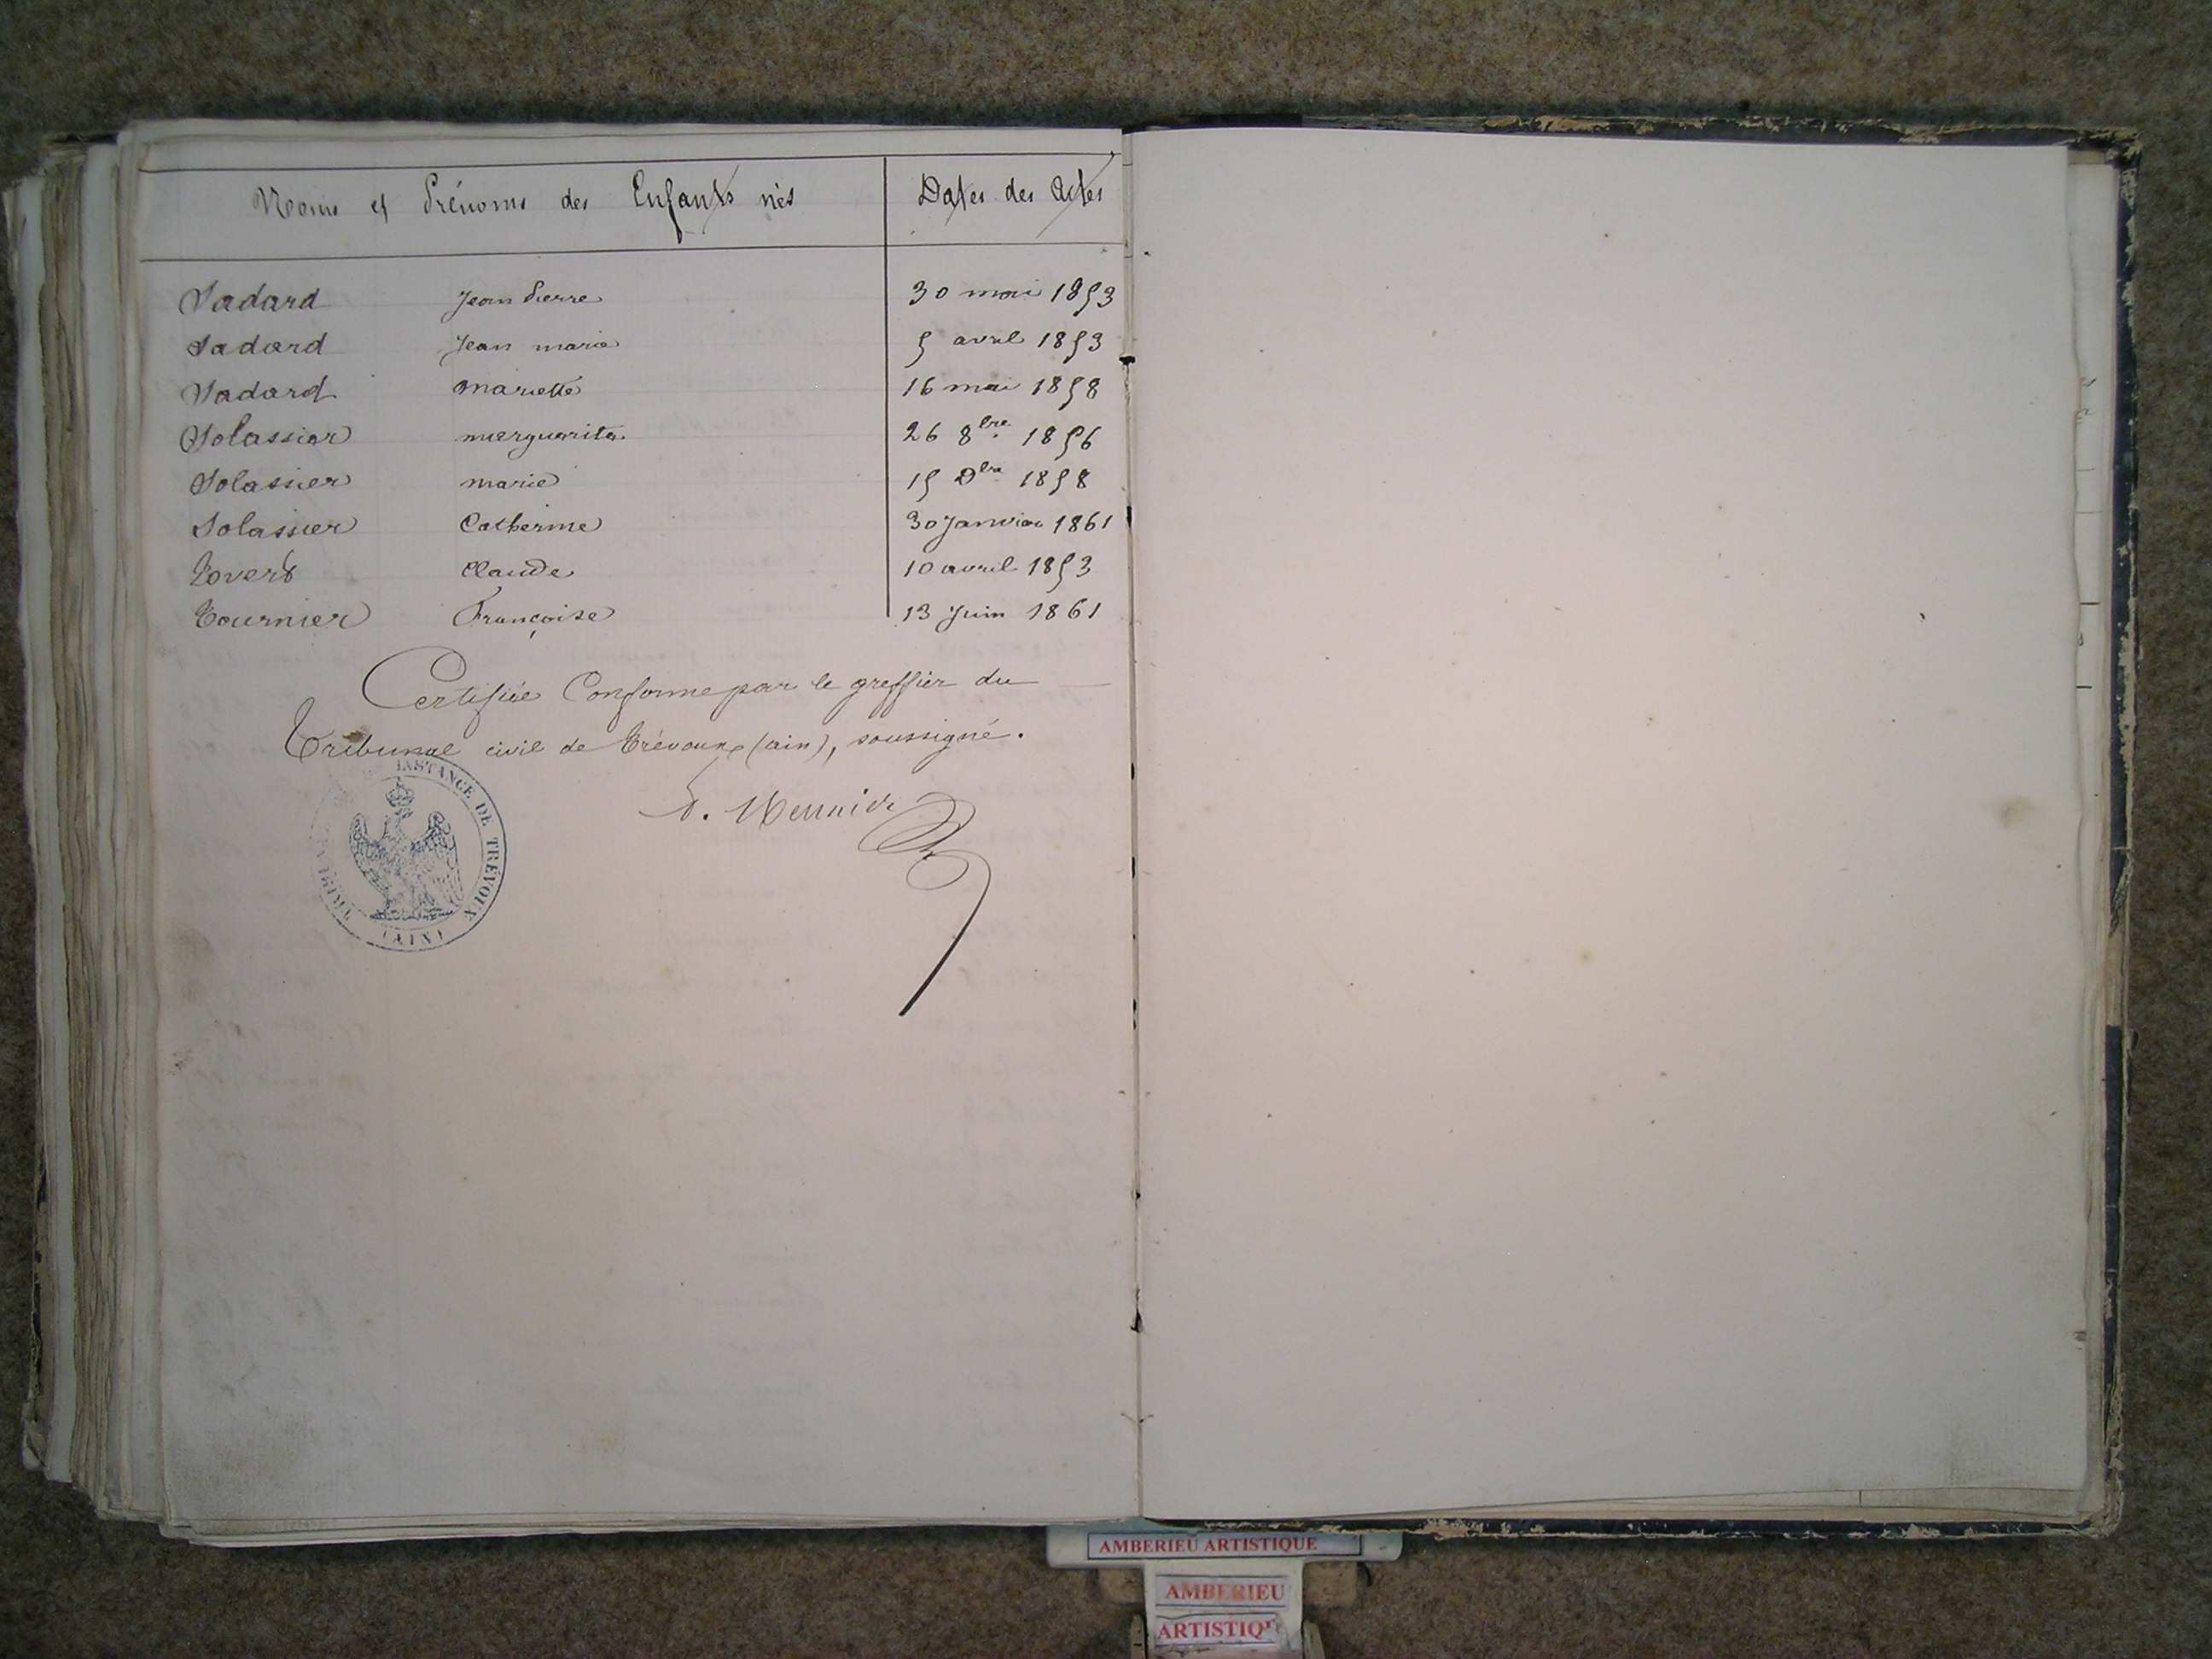 Noms et Prénoms des Enfants nés
Dates des Actes
Sadard Jean Pierre 30 mai 1853
Sadard Jean marie 5 avril 1853
Sadard Mariette 16 mai 1858
Solassier merguerite 26 8bre 1856
Solassier marie 15 Dbre 1858
Solassier Catherine 30 Janvier 1861
Claude 10 avril 1853
Tournier Françoise 13 Juin 1861
Certifiée Conforme par le greffier du
Tribunal civil de Trévoux (ain), soussigné.
Meunier
INSTANCE DE TRÉVOUX
(AIN)
AMBERIEU ARTISTIQUE
AMBERIEU
ARTISTIQU